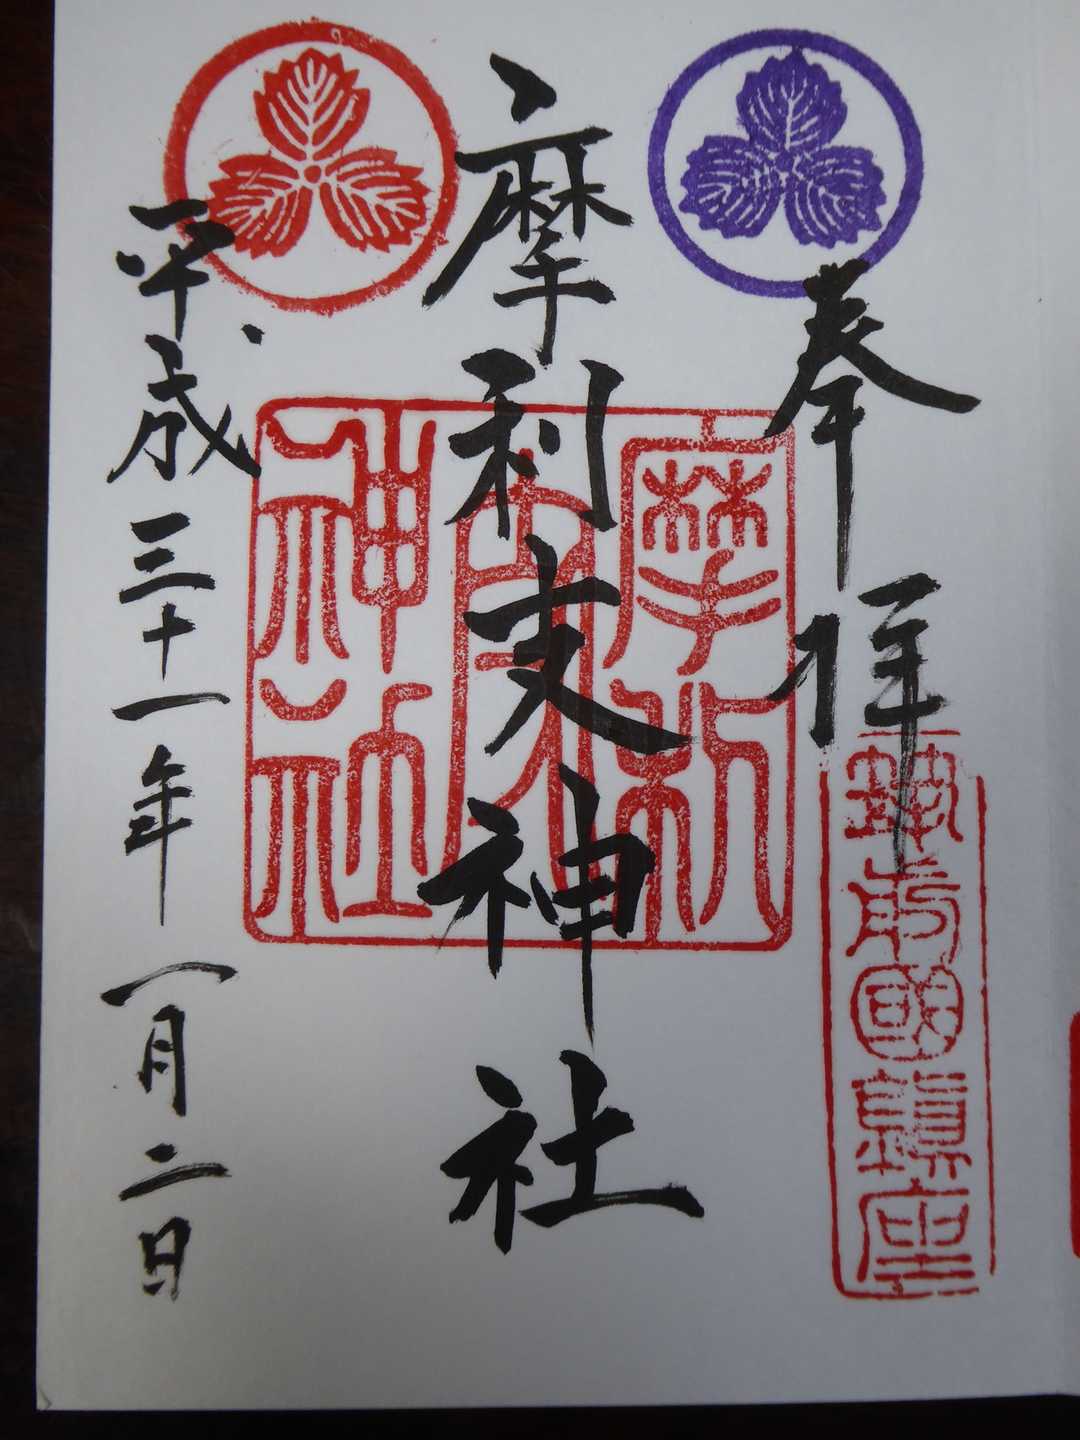 奉拝
筑前國鎮座
摩利支神社
摩利支神社
平成三十一年一月二日